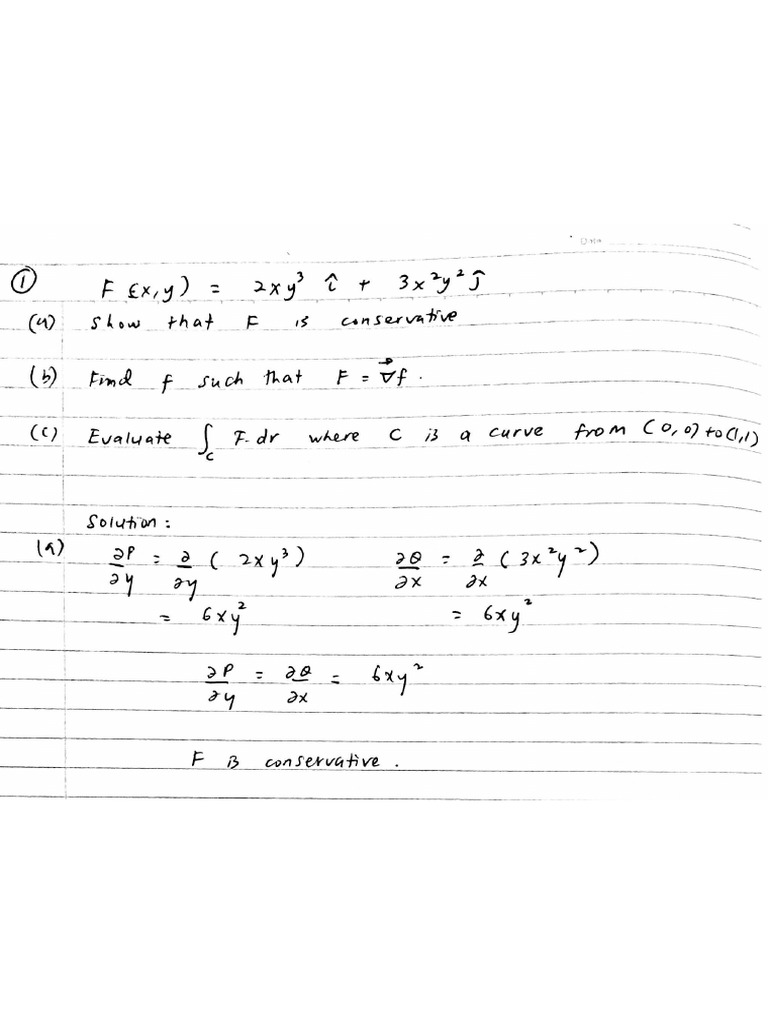 ① F (x,y) = 2xy³ î + 3x²y² ĵ
(a) show that F is conservative
(b) Find f such that F = ∇⃗f.
(c) Evaluate ∫_C F. dr where C is a curve from (0,0) to (1,1)
Solution:
(a) ∂P/∂y = ∂/∂y ( 2xy³) ∂Q/∂x = ∂/∂x (3x²y²)
= 6xy² = 6xy²
∂P/∂y = ∂Q/∂x = 6xy²
F is conservative.